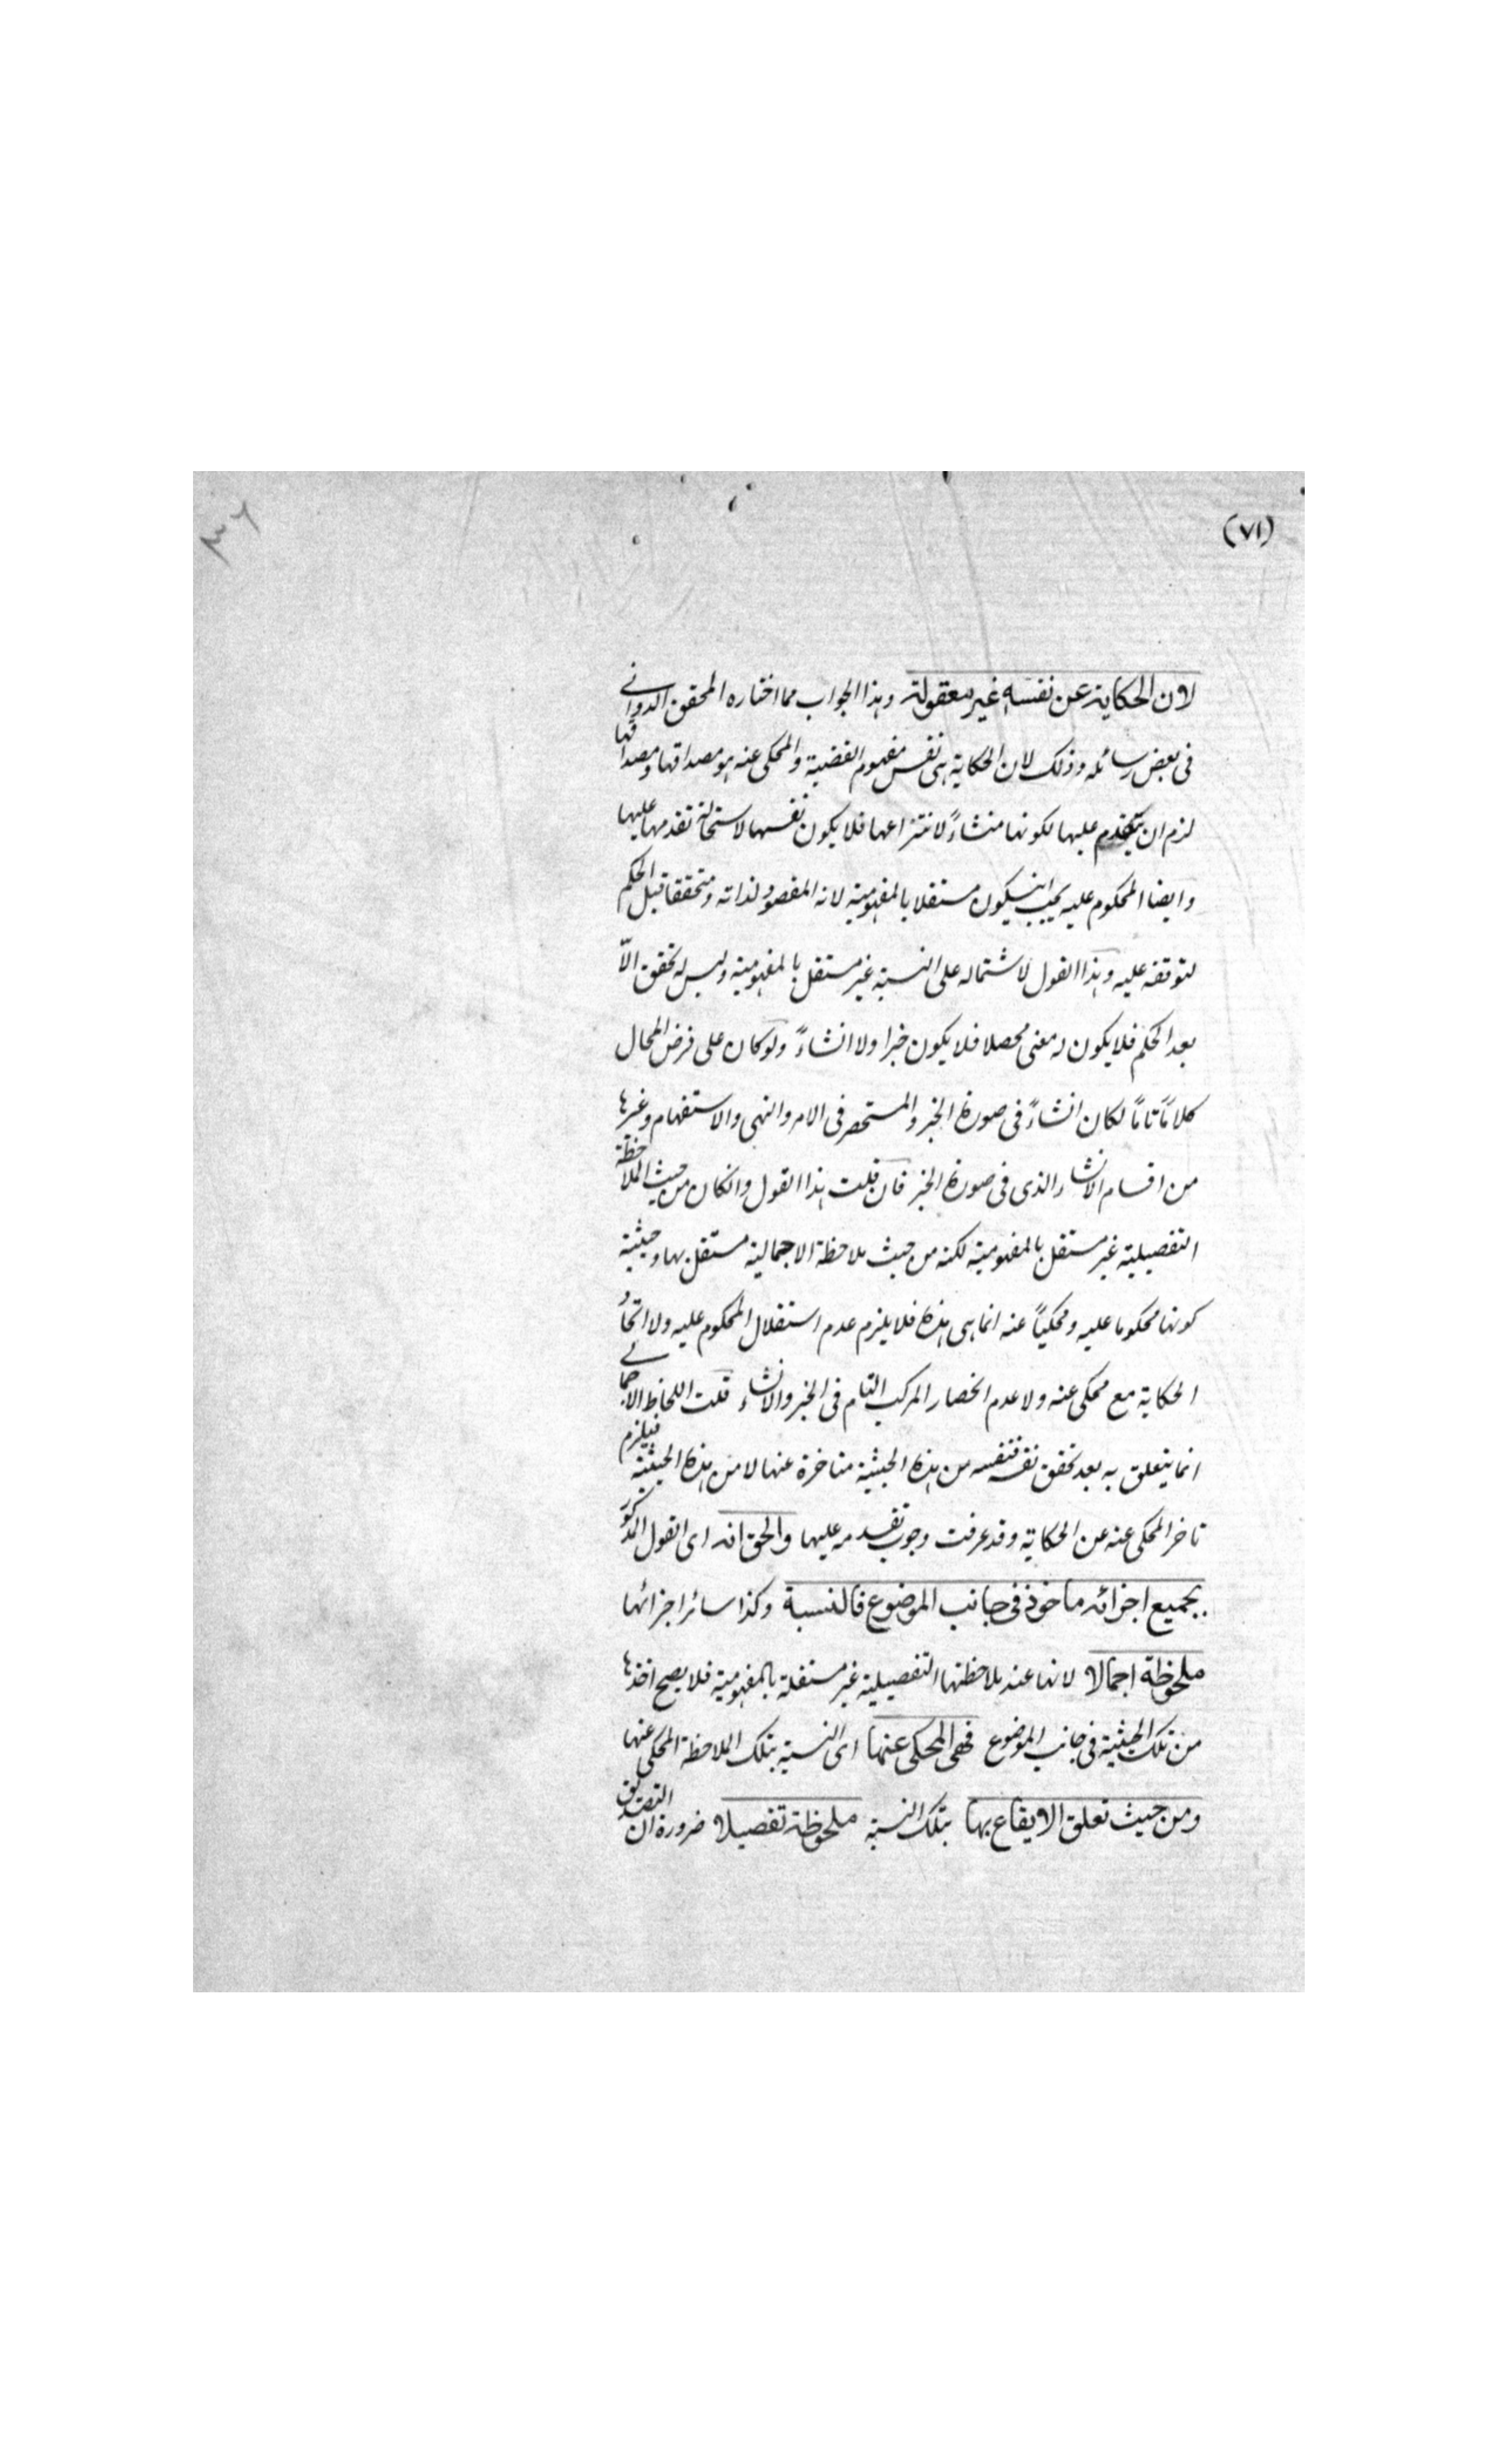 (٧١)
٣٦
لان الحكاية عن نفسه غير معقولة وهذا الجواب مما اختاره المحقق الدوانے
فى بعض رسائله وذلك لان الحكاية هى نفس مفهوم القضية والمحكى عنه هو مصداقها ومصداقها
لزم ان يتقدم عليها لكونها منشاءً لانتزاعها فلا يكون نفسها لاستحالة تقدمها عليها
وايضا المحكوم عليه يجب انيكون مستقلا بالمفهومية لانه المقصود لذاته ومتحققا قبل الحكم
لتوقفه عليه وهذا القول لاشتماله على النسبة غير مستقل بالمفهومية وليس له تحقق الاّ
بعد الحكم فلا يكون له معنى محصلا فلا يكون خبرا ولا انشاءً ولو كان على فرض المحال
كلاماً تاماً لكان انشاءً فى صورة الخبر والمستحصر فى الامر والنهى والاستفهام وغيرها
من اقسام الانشاء الذى فى صورة الخبر فان قلت هذا القول وانكان من حيث الملاحظة
التفصيلية غير مستقل بالمفهومية لكنه من حيث ملاحظة الاجمالية مستقل بها وحيثية
كونها محكوما عليه ومحكياً عنه انما هى هذه فلا يلزم عدم استقلال المحكوم عليه ولا اتحادُ
الحكاية مع محكى عنه ولا عدم انحصار المركب التام فى الخبر والانشاء قلت اللحاظ الاجمالے
انما يتعلق به بعد تحقق نفسه فنفسه من هذه الحيثية متاخرة عنها لا من هذه الحيثية فيلزم
تاخر المحكى عنه عن الحكاية وقد عرفت وجوب تقدمه عليها والحق انه اى القول المذكور
بجميع اجزائه ماخوذ فى جانب الموضوع فالنسبة وكذا سائر اجزائها
ملحوظة اجمالا لانها عند ملاحظتها التفصيلية غير مستقلة بالمفهومية فلا يصح اخذها
من تلك الحيثية فى جانب الموضوع فهى المحكى عنها اى النسبة بتلك الملاحظة المحكى عنها
ومن حيث تعلق الايقاع بها بتلك النسبة ملحوظة تفصيلا ضرورة ان التصديق